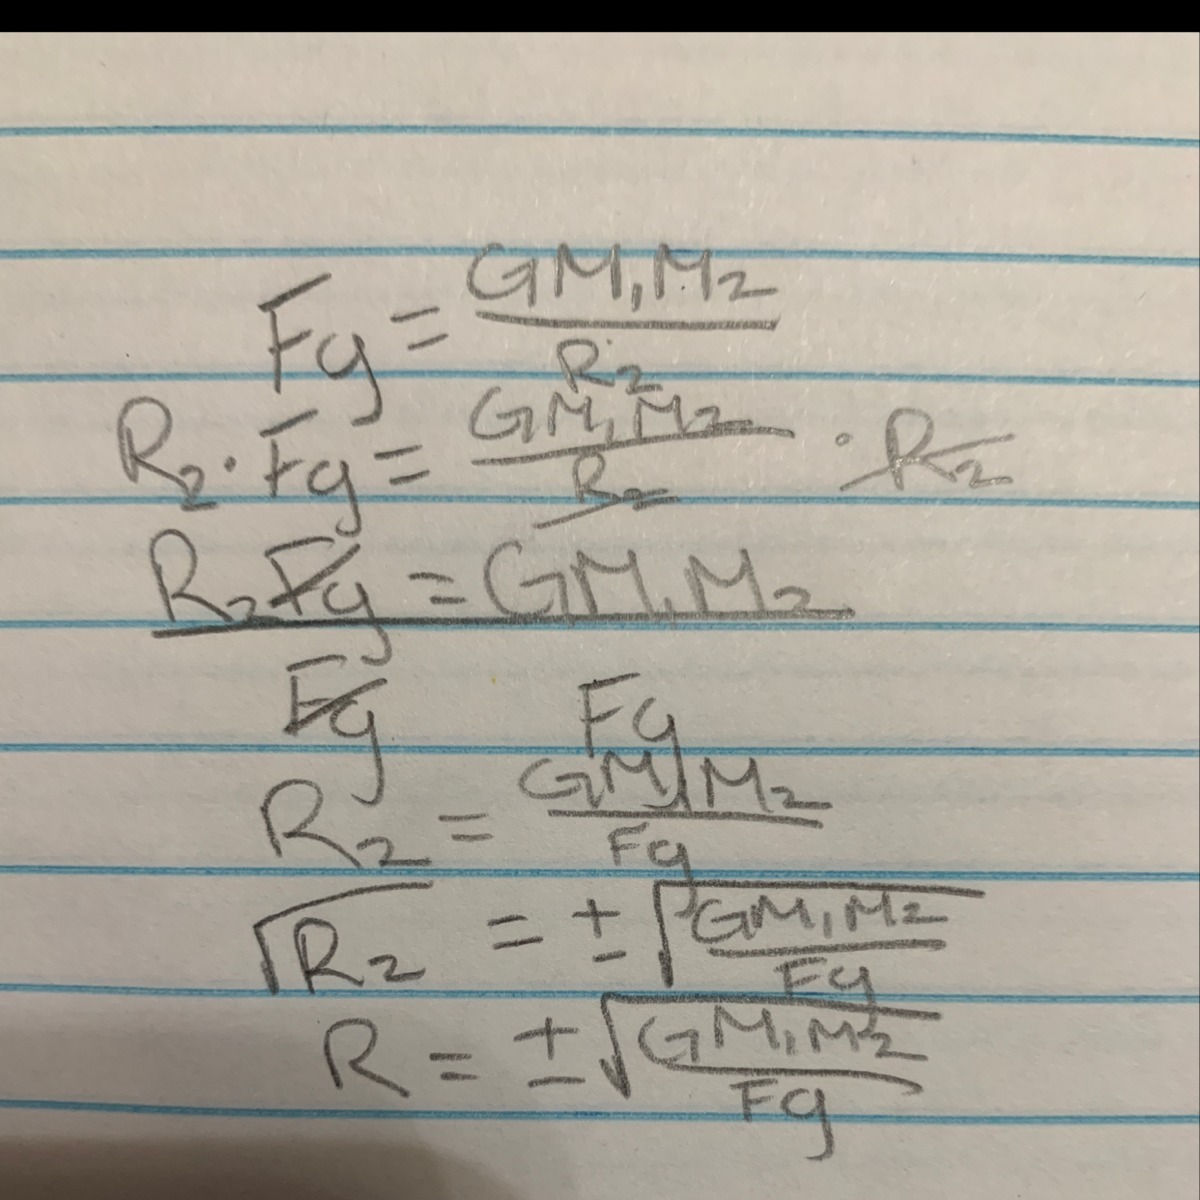 Fg = GM₁M₂/R₂
R₂ · Fg = GM₁M₂/R₂ · R₂
R₂Fg/Fg = GM₁M₂/Fg
R₂ = GM₁M₂/Fg
√R₂ = ±√(GM₁M₂/Fg)
R = ±√(GM₁M₂/Fg)